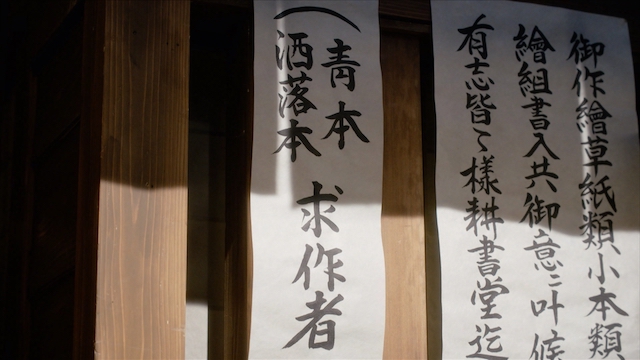 御作繪草紙類小本類
繪組書入共御意ニ叶候
有志皆々様耕書堂迄
青本
洒落本
求作者